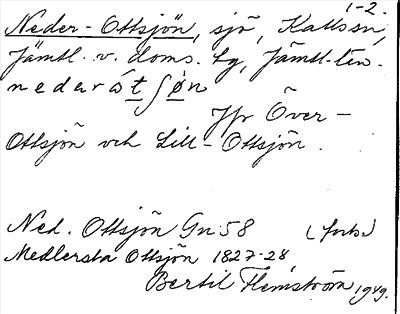 1-2.
Neder-Ottsjön, sjö, Kallssn,
Jämtl. v. doms. tg, Jämtl. län.
nederåt∫øn
Jfr Över-
Ottsjön och Lill-Ottsjön.
Ned. Ottsjön Gn 58 (forts.)
Medlersta Ottsjön 1827-28
Bertil Flemström 1949.